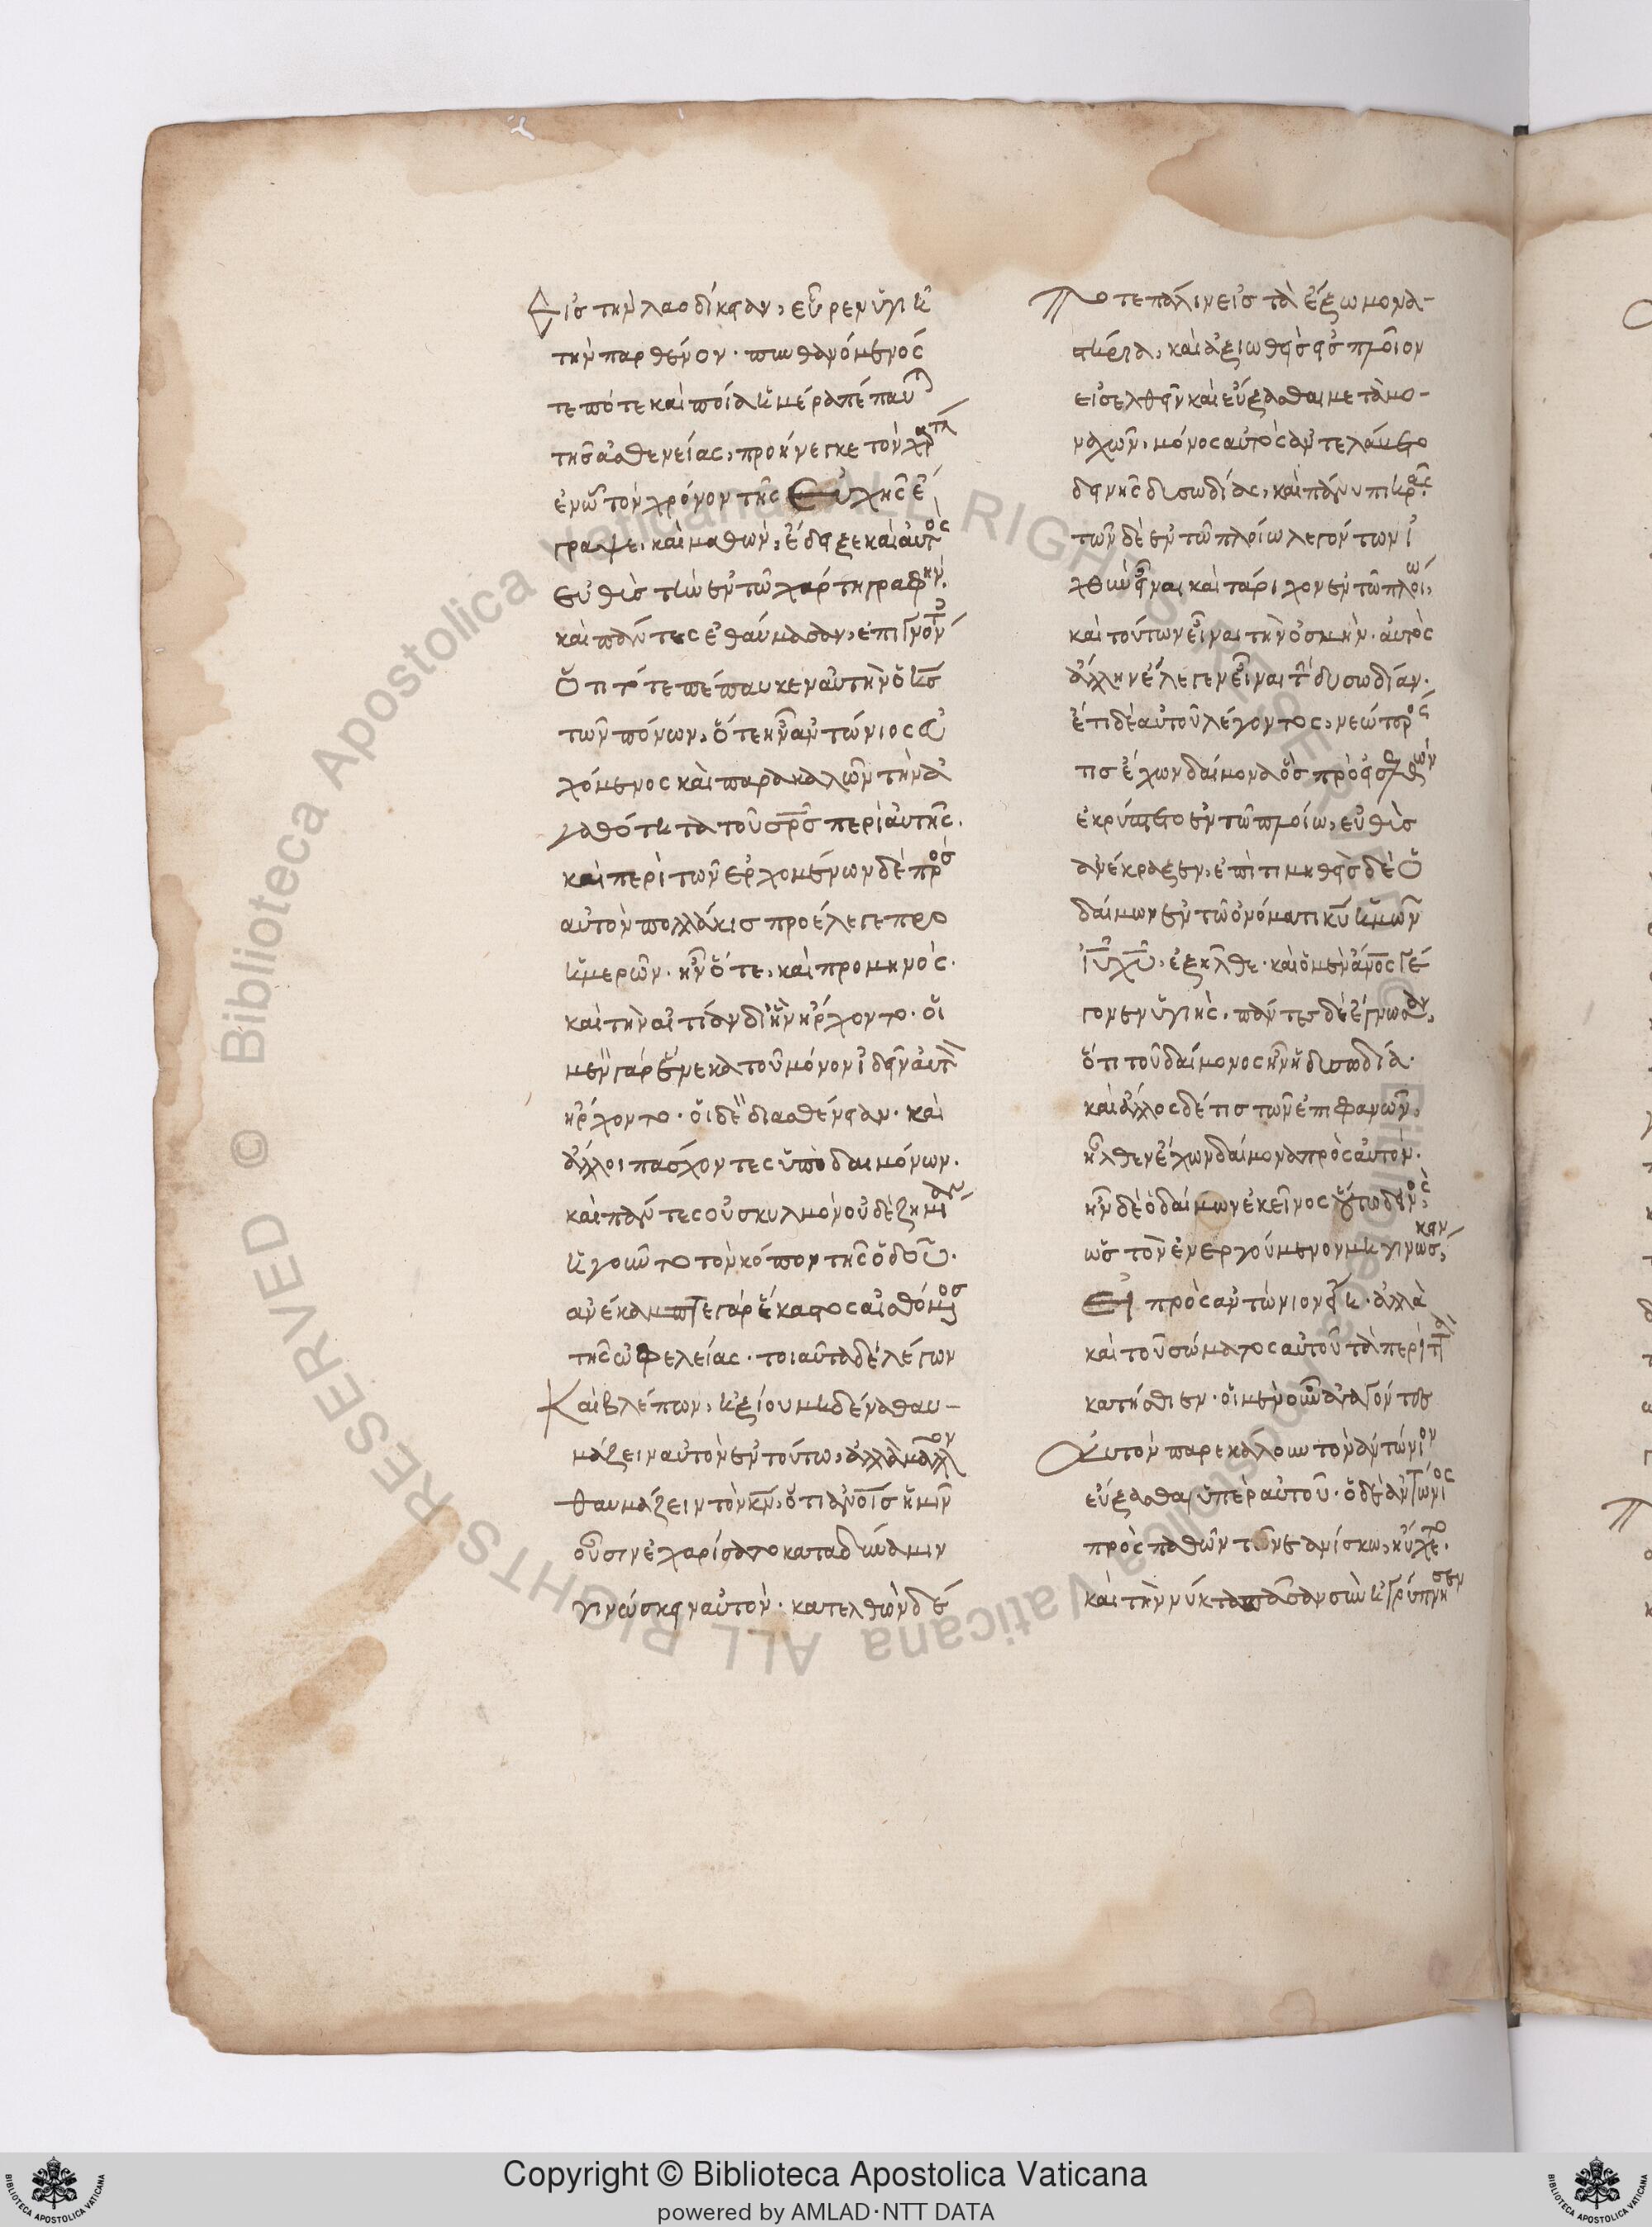 Εἰς τὴν λαοδίκειαν, εὗρεν ὑγιῆ
τὴν παρθένον· πυνθανόμενός
τε πότε καὶ ποία ἡμέρα πέπαυται
τῆς ἀσθενείας, προήνεγκε τὸν χάρτην
ἐν ᾧ τὸν χρόνον τῆς εὐχῆς ἔ
γραψε. καὶ μαθὼν, ἔδειξε καὶ αὐτὸς
εὐθὺς τὴν ἐν τῷ χάρτη γραφήν.
καὶ πάντες ἐθαύμασαν, ἐπιγνόντες
ὅτι τότε πέπαυκεν αὐτὴν ὁ κς
τῶν πόνων, ὅτε ἦν ἀντώνιος εὐ
χόμενος καὶ παρακαλῶν τὴν ἀ
γαθότητα τοῦ σρς περὶ αὐτῆς.
καὶ περὶ τῶν ἐρχομένων δὲ πρὸς
αὐτὸν πολλάκις προέλεγε πρὸ
ἡμερῶν. ἦν ὅτε, καὶ προμηνός.
καὶ τὴν αἰτίαν δι' ἣν ἤρχοντο. οἱ
μὲν γὰρ ἕνεκα τοῦ μόνον ἰδεῖν αὐτὸν
ἤρχοντο. οἱ δὲ δι ἀσθένειαν. καὶ
ἄλλοι πάσχοντες ὑπὸ δαιμόνων.
καὶ πάντες οὐ σκυλμὸν οὐδὲ ζημίαν
ἡγοῦντο τὸν κόπον τῆς ὁδοῦ.
ἀνέκαμπτε γὰρ ἕκαστος αἰσθόμενος
τῆς ὠφελείας. τοιαῦτα δὲ λέγων
Καὶ βλέπων, ἠξίου μηδένα θαυ-
μάζειν αὐτὸν ἐν τούτω, ἀλλὰ μᾶλλον
θαυμάζειν τὸν κν, ὅτι ἀνοις ἡμῖν
οὖσιν ἐχαρίσατο κατὰ δύναμιν
γινώσκειν αὐτόν. κατελθὼν δέ
Ποτε πάλιν εἰς τὰ ἔξω μονα-
στήρια, καὶ ἀξιωθεὶς εἰς πλοῖον
εἰσελθεῖν καὶ εὔξασθαι μετὰ μο-
ναχῶν, μόνος αὐτὸς ἀντελάμβετο
δεινῆς δυσωδίας, καὶ πάνυ πικρᾶς.
τῶν δὲ ἐν τῷ πλοίω λεγόντων ἰ
χθὺν εἶναι καὶ τάριχον ἐν τῷ πλοίω,
καὶ τούτων εἶναι τὴν ὀσμήν. αὐτὸς
ἄλλην ἔλεγεν εἶναι τὴν δυσωδίαν.
ἔτι δὲ αὐτοῦ λέγοντος, νεώτερός
τις ἔχων δαίμονα ὃς προεισελθὼν
ἐκρύπτετο ἐν τῷ πλοίω, εὐθὺς
ἀνέκραξεν, ἐπιτιμηθεὶς δὲ ὁ
δαίμων ἐν τῷ ὀνόματι κυ ἡμῶν
ιυ χυ, ἐξῆλθε. καὶ ὁ μὲν ἄνος γέ
γονεν ὑγιὴς. πάντες δὲ ἔγνωσαν,
ὅτι τοῦ δαίμονος ἦν ἡ δυσωδία.
καὶ ἄλλος δέ τις τῶν ἐπιφανῶν,
ἦλθεν ἔχων δαίμονα πρὸς αὐτόν.
ἦν δὲ ὁ δαίμων ἐκεῖνος οὕτω δεινὸς,
ὡς τὸν ἐνεργούμενον μὴ γινώσκειν,
Εἰ πρὸς ἀντώνιον εἴη. ἀλλὰ
καὶ τοῦ σώματος αὐτοῦ τὰ περιττὰ
κατήσθιεν. οἱ μὲν οὖν ἀγαγόντες
Αὐτὸν παρεκάλουν τὸν ἀντώνιον
εὔξασθαι ὑπὲρ αὐτοῦ. ὁ δὲ ἀντώνιος
προσπαθῶν τῷ νεανίσκω, ηὔχετο.
καὶ τὴν νύκτα πᾶσαν συνηγρύπνησεν